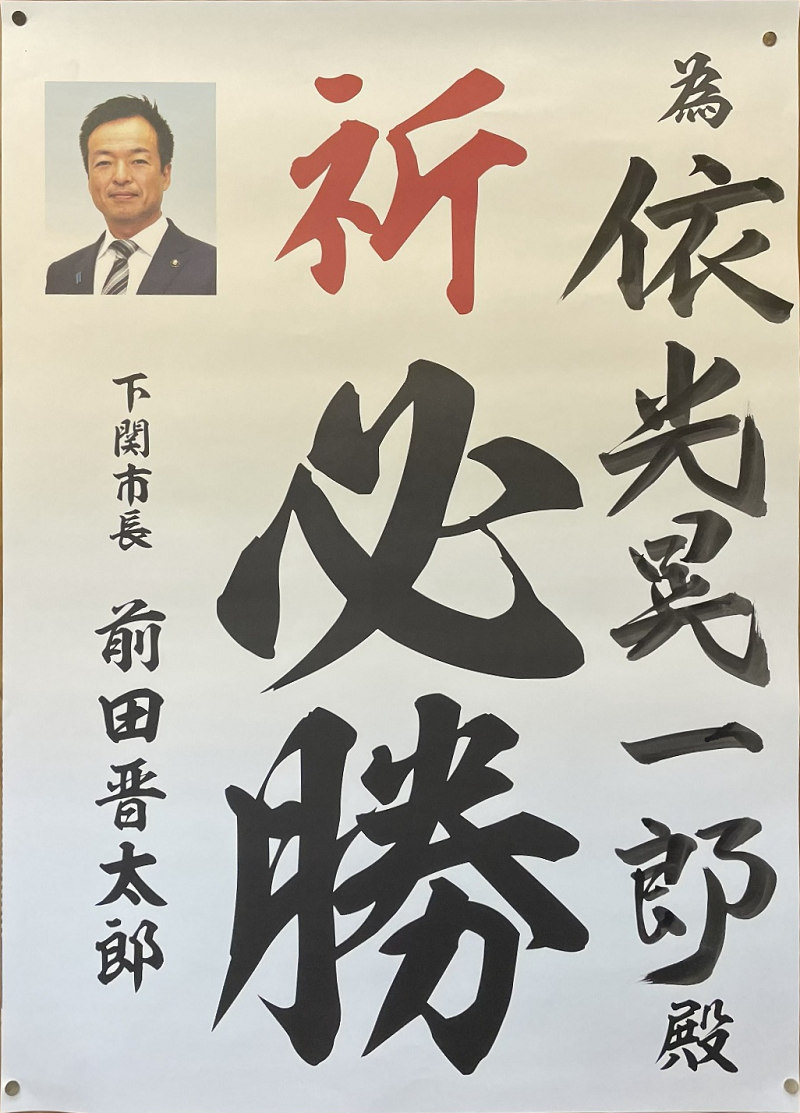 為 依光晃一郎 殿
祈 必勝
下関市長 前田晋太郎